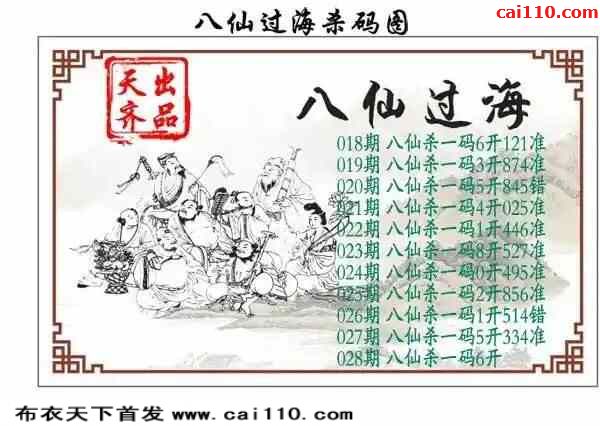 八仙过海杀码图
cai110.com
天齐出品
八仙过海
018期 八仙杀一码6开121准
019期 八仙杀一码3开874准
020期 八仙杀一码5开845错
021期 八仙杀一码4开025准
022期 八仙杀一码1开446准
023期 八仙杀一码8开527准
024期 八仙杀一码0开495准
025期 八仙杀一码2开856准
026期 八仙杀一码1开514错
027期 八仙杀一码5开334准
028期 八仙杀一码6开
布衣天下首发 www.cai110.com